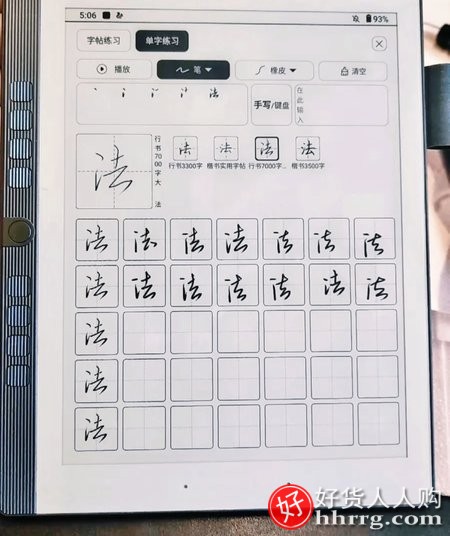 5:06 93%
字帖练习 单字练习
播放 笔 橡皮 清空
法 手写/键盘 在此输入
法 行书7000字大 法
法 法 法 法
行书3300字 楷书实用字帖 行书7000字... 楷书3500字
法 法 法 法 法 法 法
法 法 法 法 法 法 法
法
法
法
好 好货人人购
hhrrg.com